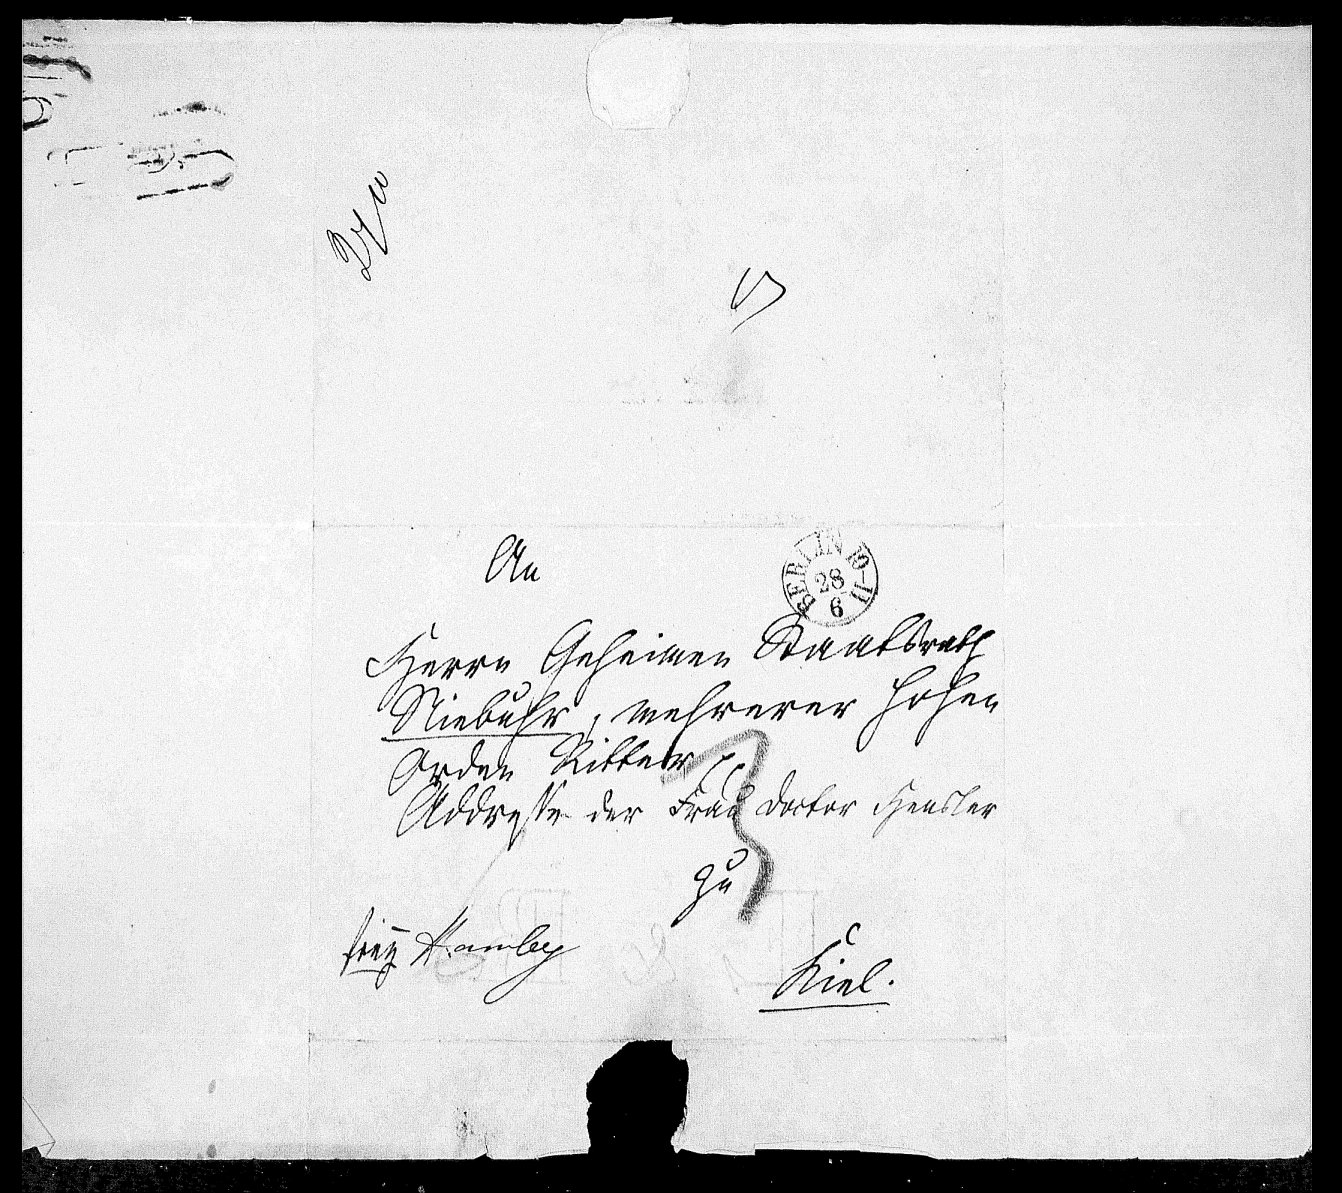 An
BERLIN 10-11
28
6
Herrn Geheimen Staatsrath
Niebuhr, mehrerer hohen
Orden Ritter
Addresse der Frau Doctor Hensler
zu
frey Hamburg
Kiel.